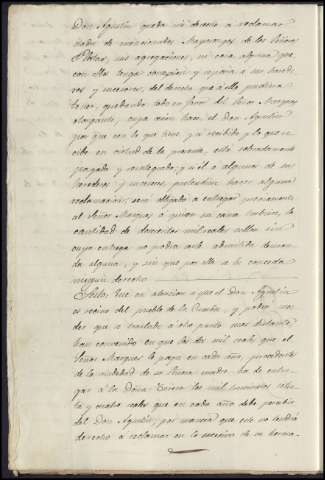 Don Agustin queda sin derecho a reclamar
nada de mencionados Mayorazgos de los Señores
sus agregaciones, ni cosa alguna que
con ellos tenga conexion y renuncia a sus herede
ros y sucesores, del derecho que a ello pudieran
tener, quedando todo en favor del Señor Marques
otorgante, cuya union hace el don Agustin
por que con lo que tiene ya recibido y lo que re
cibe en virtud de la presente, está sobradamente
pagado y reintegrado; y si él o alguno de sus
herederos y sucesores, pretendiesen hacer alguna
reclamacion, sean obligados a entregar previamente
al Señor Marques o quien su causa hubiere, la
cantidad de doscientos mil reales vellon sin
cuya entrega no podrá serle admitida deman
da alguna, y sin que por ella se le conceda
ningun derecho.
Sesto: Que en atencion a que el Don Agustin
es vecino del pueblo de la y poder
der que se traslade a otro punto mas distante,
han convenido en que los dos mil reales que el
Señor Marques le paga en cada año, procedente
de la de su Señora madre, ha de entre
gar á la Doña los mil seiscientos
ta y cuatro reales que en cada año debe percibir
del Don Agustin; por manera que este no tendrá
derecho a reclamar en la sucesion de su herma-